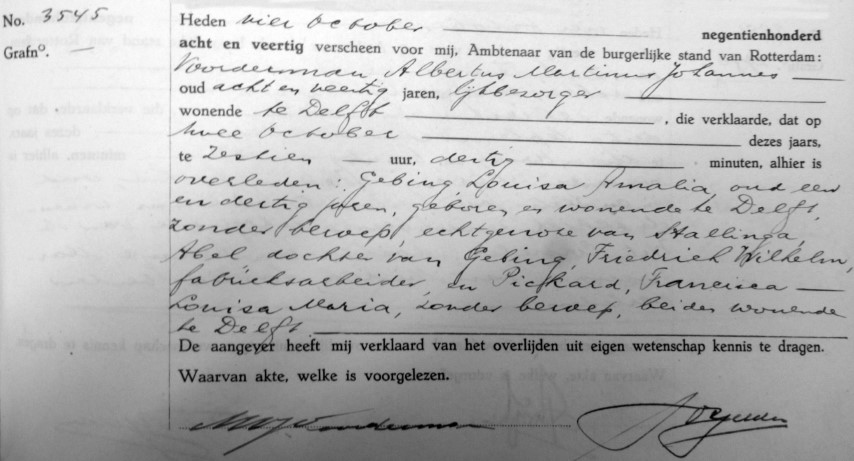 No. 3545
Grafn⁰. —
Heden vier October negentienhonderd
acht en veertig verscheen voor mij, Ambtenaar van de burgerlijke stand van Rotterdam:
Voorderman Albertus Martinus Johannes
oud acht en veertig jaren, lijkbezorger
wonende te Delft, die verklaarde, dat op
twee October dezes jaars,
te zestien uur, dertig minuten, alhier is
overleden: Gebing, Louisa Amalia, oud een
en dertig jaren, geboren en wonende te Delft,
zonder beroep, echtgenote van Stallinga,
Abel dochter van Gebing, Friedrich Wilhelm,
fabrieksarbeider, en Pickard, Francisca
Louisa Maria, zonder beroep, beiden wonende
te Delft.
De aangever heeft mij verklaard van het overlijden uit eigen wetenschap kennis te dragen.
Waarvan akte, welke is voorgelezen.
Voorderman